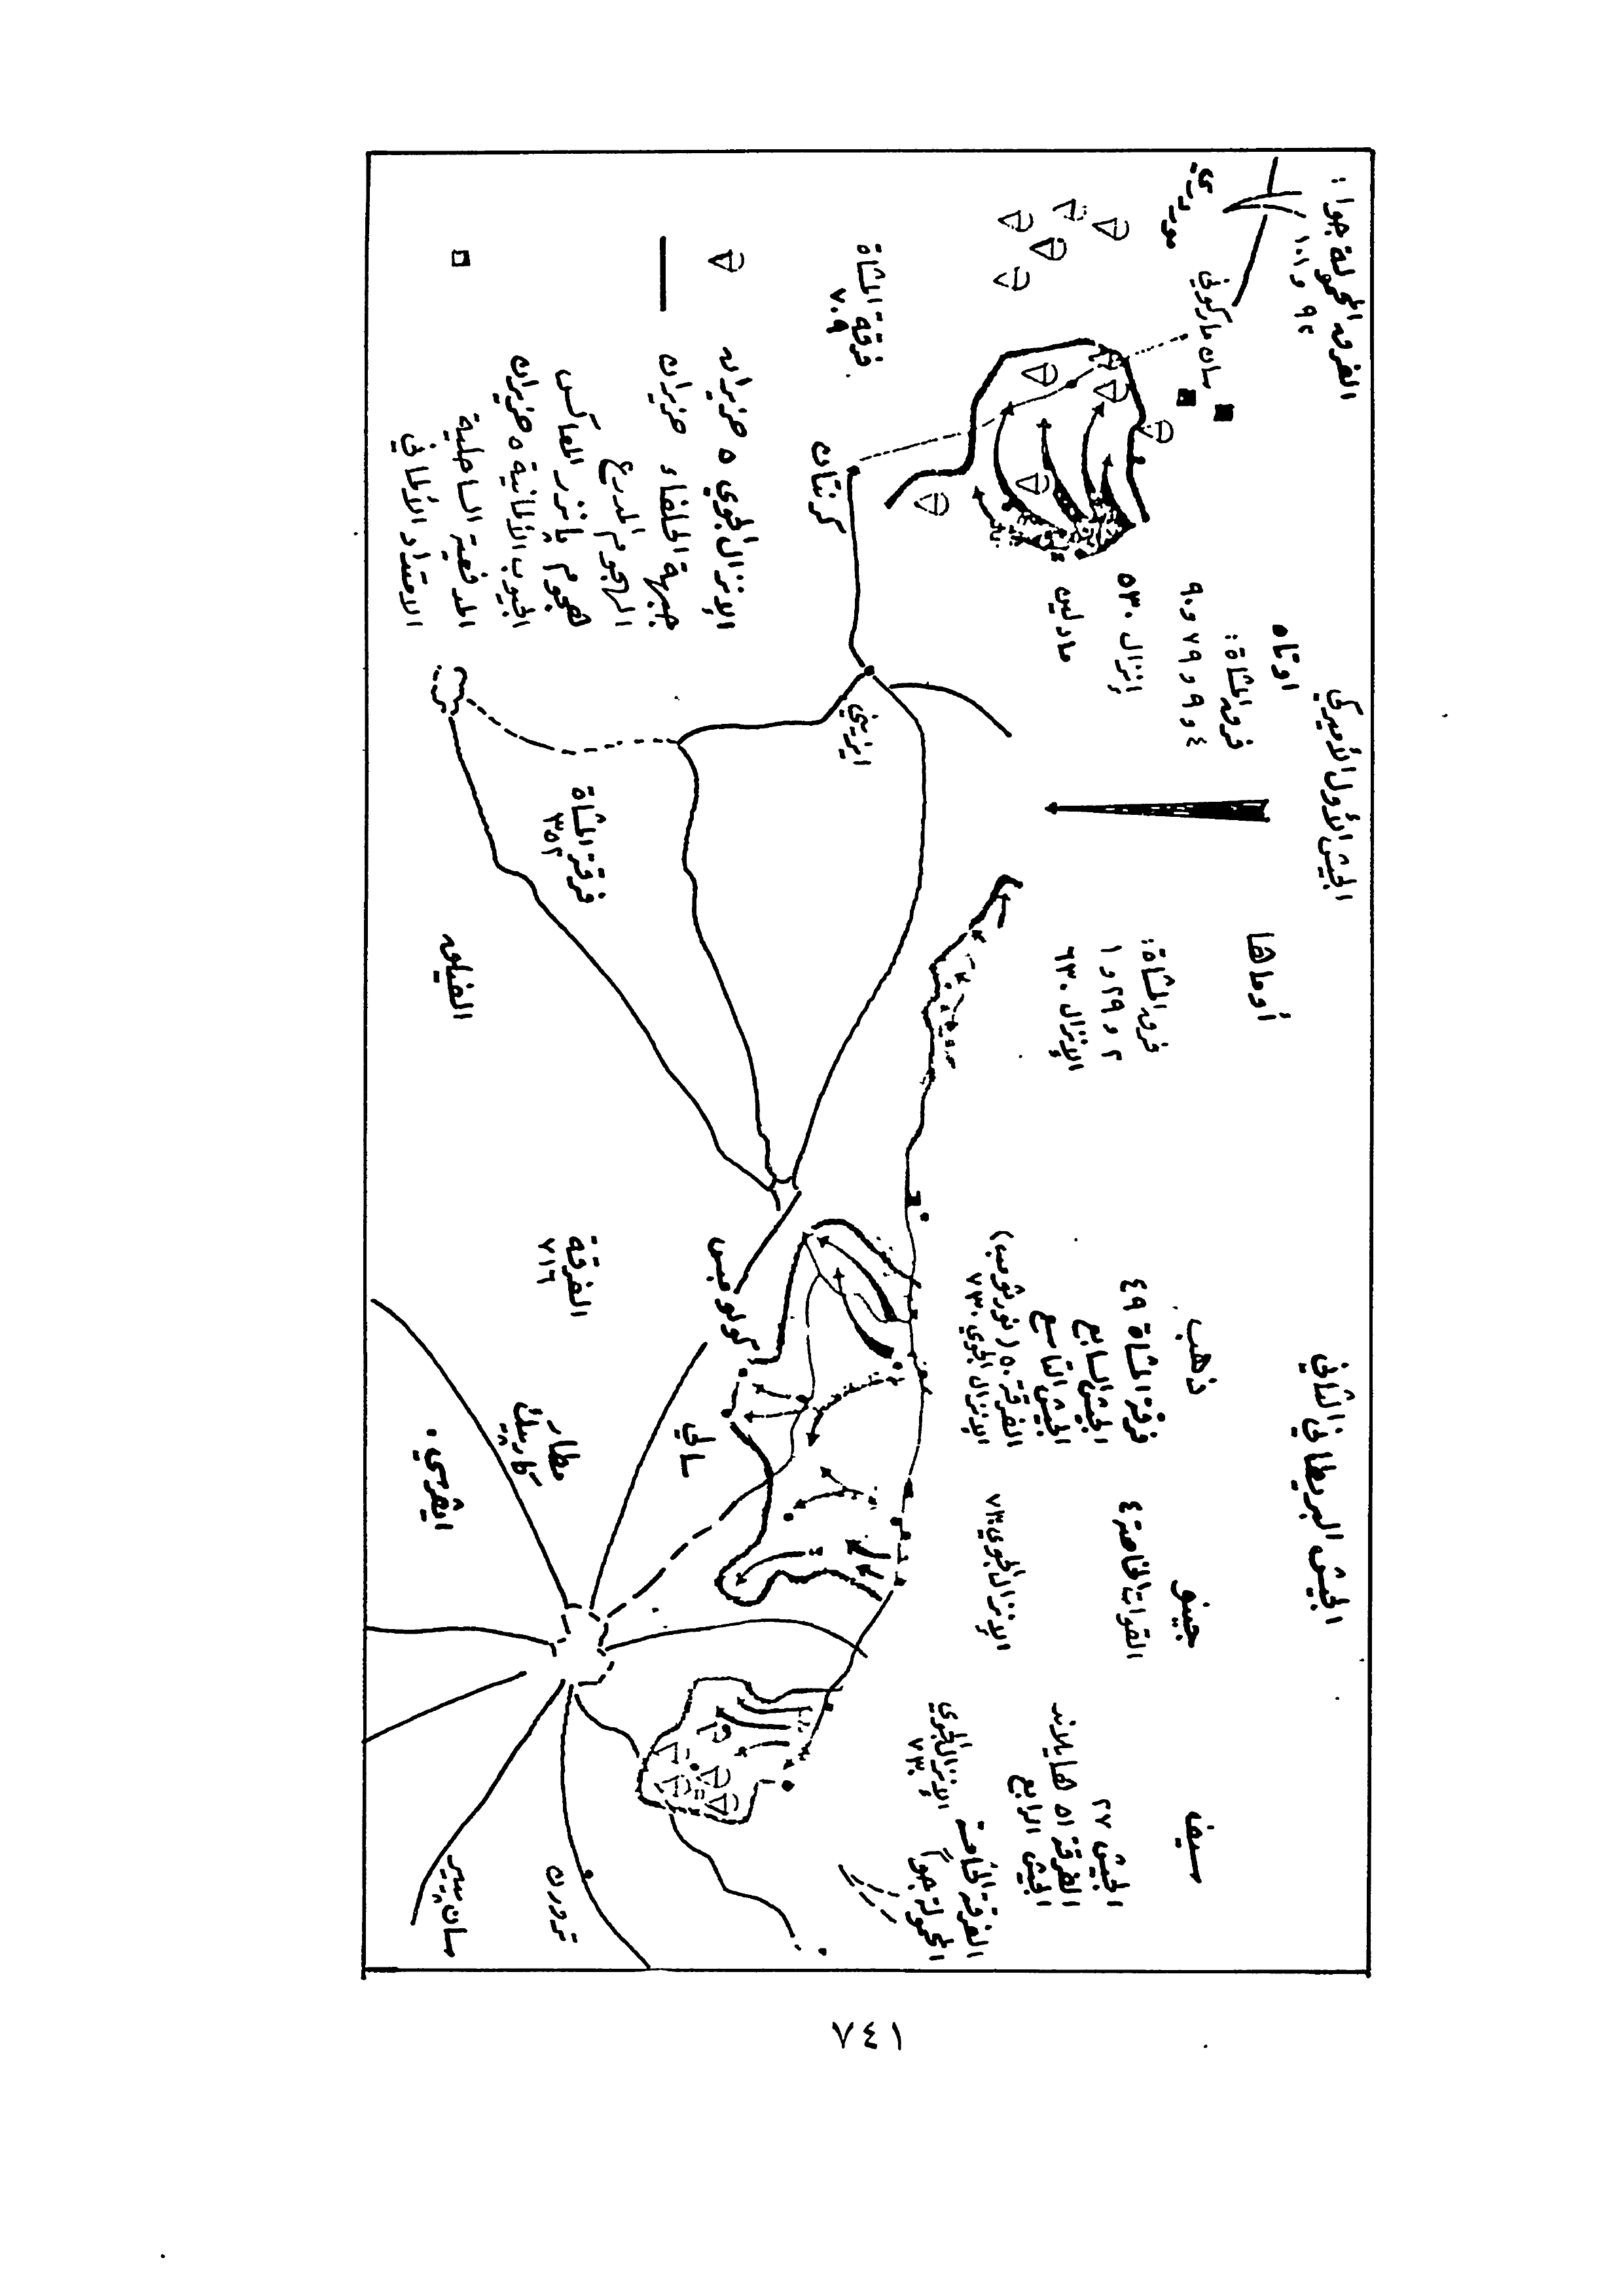 الفرق المحمولة جوا :
٨٢ و ١٠١
الجيش الأول الأميركي
الجيش البريطاني الثاني
اوتاه
فرق المشاة :
٤ و ٩ و ٧٩ و ٩٠
إنزال ٥٣٠
مادلين
أوماها
فرق المشاة :
٢ و ٢٩ و ١
الإنزال ٦٣٠
ذهب
فرقة المشاة ٤٩
الجيش السابع
الجيش التاسع
الفرقة ٥٠ ( نورثومب )
الإنزال الجوي ٧٣٠
جينو
القوات الخاصة ٤
الإنزال الجوي ٧٣٠
سيف
الجيش ٢٧
الفرقة ٥١ هايلاند
الجيش الرابع
الإنزال الجوي
٧٣٠
الفرقة الخامسة
المحمولة جواً
سان ماركوني
فرقة المشاة
٧٠٩
كرنتان
ايزيني
فرقة المشاة
٣٥٢
الفيلق
الفرقة
٧١٦
كولومبس
مطار
كاربيك
ايفرسي
تروارن
سان پيير
الإنزال الجوي ٥ حزيران
جبهة الحلفاء حزيران
الهجوم المدرع
هجوم پانزر المعاكس
الجيوب الألمانية ٥ حزيران
المدفعية الساحلية
الامتداد الألماني
٧٤١